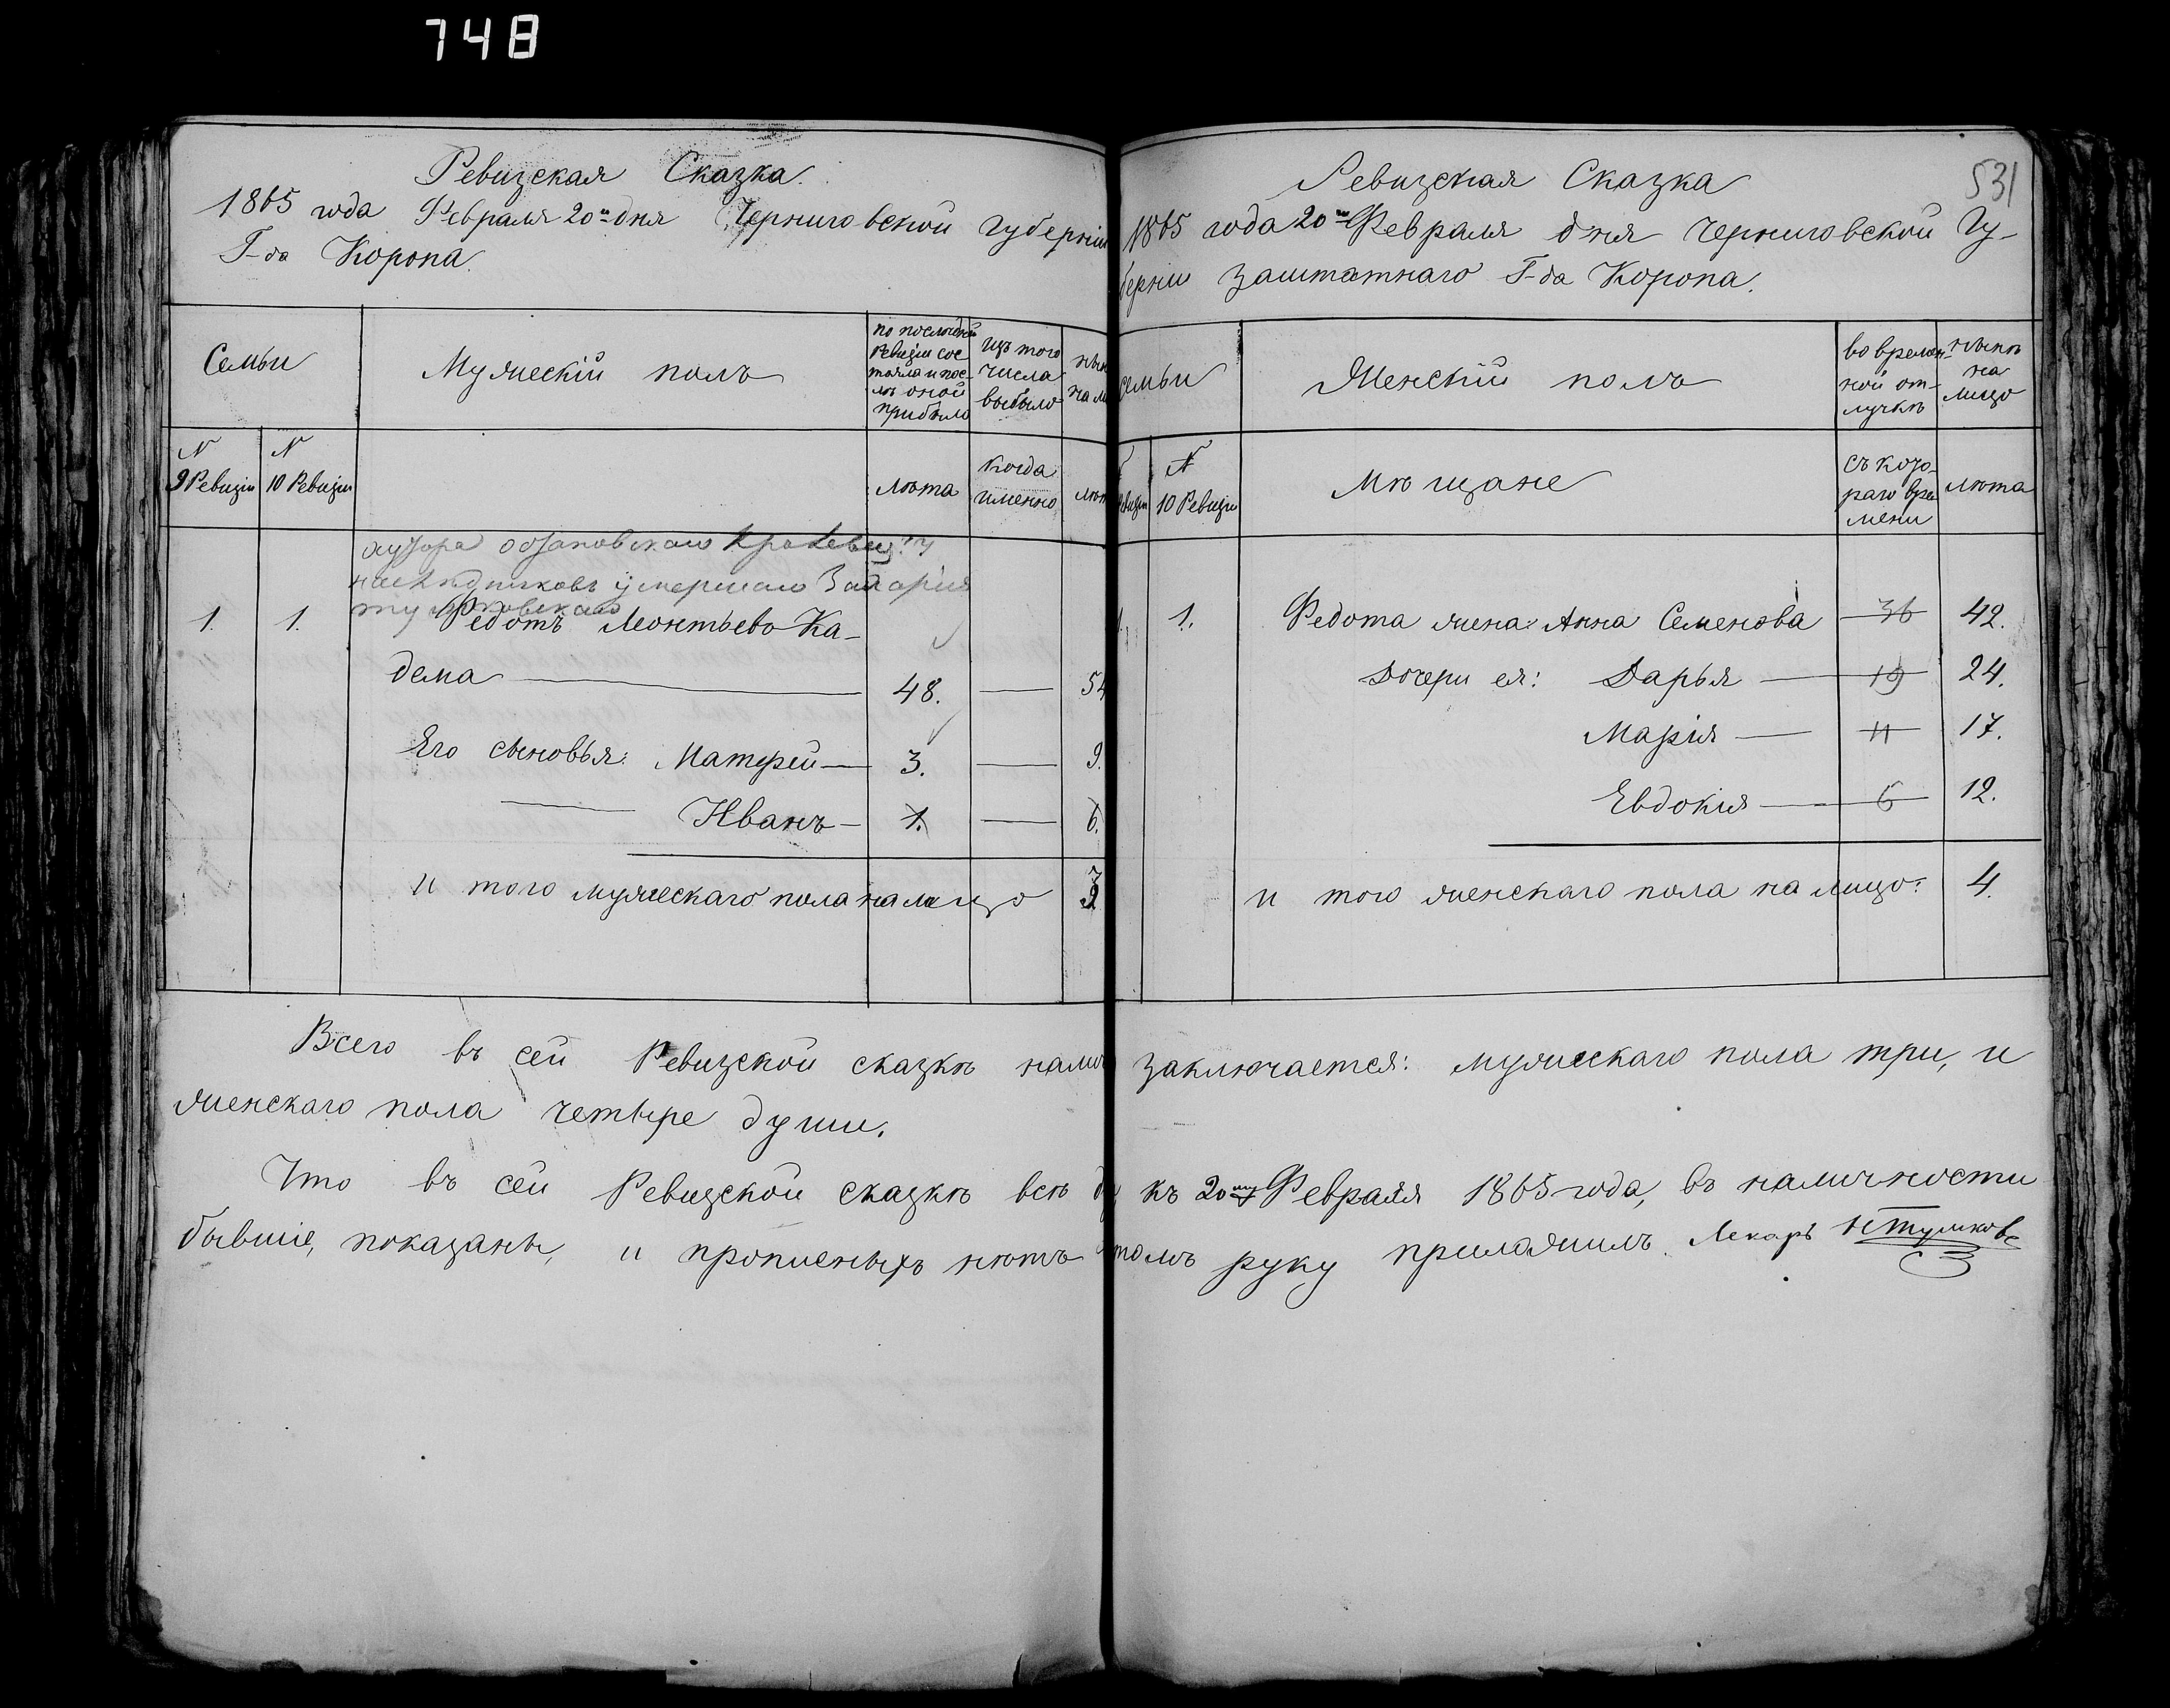 748
Ревизская Сказка.
1865 года Февраля 20го дня Черниговской Губерніи
Г-да Коропа.
Семьи
Мужескій полъ
по послѣдней
Ревизіи сос
тояло и пос-
лѣ оной
прибыло
изъ того
числа
выбыло
N
9 Ревизіи
N
10 Ревизіи
лѣта
когда
именно
наслѣдниковъ умершаго Захарія
1.
1.
Федотъ Леонтьевъ Ка-
дема
48.
54
Его сыновья: Матфей
3.
9.
Иванъ
1.
6.
и того мужескаго пола на лицо
3
Всего въ сей Ревизской сказкѣ
женскаго пола четыре души.
Что въ сей Ревизской сказкѣ всѣ
бывшіе, показаны, и прописныхъ нѣтъ
531
Ревизская Сказка
1865 года 20го Февраля дня Черниговской Гу-
берніи Заштатнаго Г-да Коропа.
семьи
Женскій полъ
во времен-
ной от-
лучкѣ
нынѣ
на
лицо
N
10 Ревизіи
Мѣщане
съ кото-
раго вре
мени
лѣта
1.
Федота жена: Анна Семенова
36
42.
Дочери ея: Дарья
19
24.
Марія
11
17.
Евдокія
6
12.
и того женскаго пола на лицо:
4.
заключается: мужескаго пола три, и
къ 20му Февраля 1865 года, въ наличности
томъ руку приложилъ. Лекарь